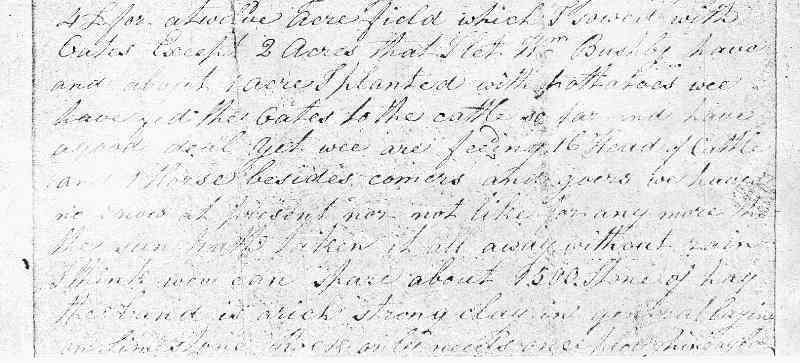 for a twelve Acre field which I sowed with
Oates Except 2 Acres that I let Wm Bushby have
and about 1 acre I planted with pottatoes wee
have fed the Oates to the cattle so far and have
a good deal yet wee are feeding 16 Head of Cattle
and 1 Horse besides comers and goers we have
no snow at present nor not like for any more
the sun hath taken it all away without rain
I think wee can spare about 1500 Stone of hay
the Land is a rich strong clay in general lying
on limestone Rock only needs once